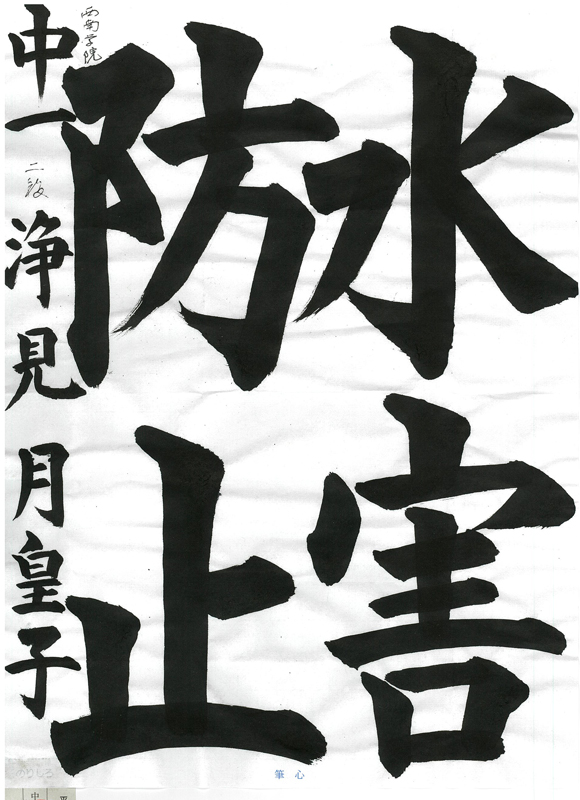 水害
防止
西南学院
中一
二段
浄見 月皇子
筆心
のりしろ
中